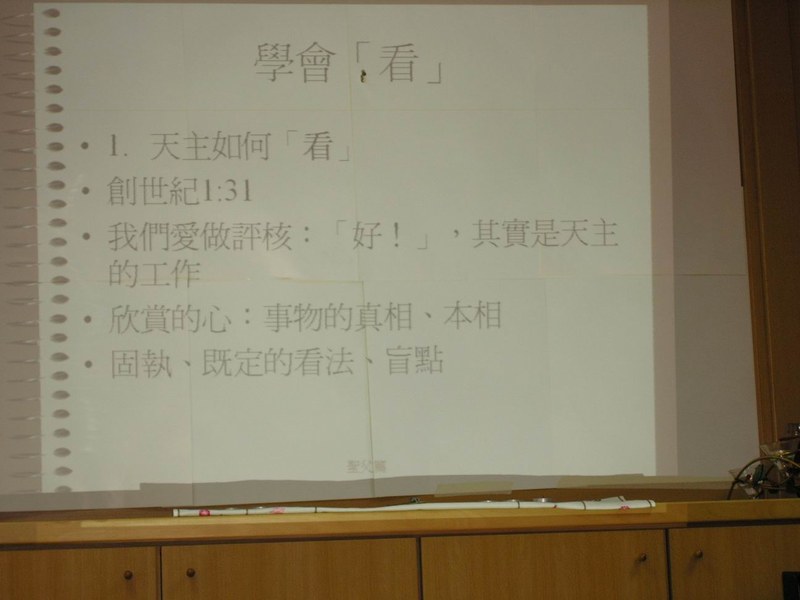 學會「看」
• 1. 天主如何「看」
• 創世紀1:31
• 我們愛做評核：「好！」，其實是天主
的工作
• 欣賞的心：事物的真相、本相
• 固執、既定的看法、盲點